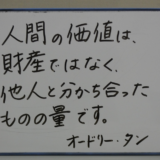 人間の価値は、
財産ではなく、
他人と分かち合った
ものの量です。
オードリー・タン